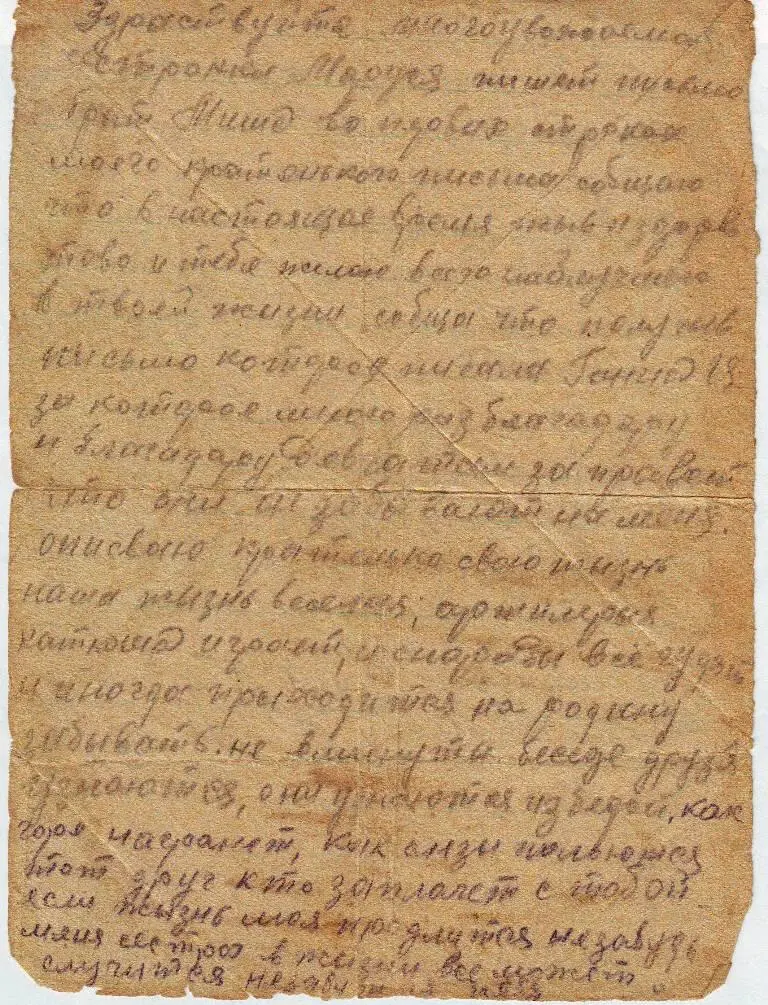 Здраствуйте многоуважаемая
сестрёнка Маруся пишет письмо
брат Миша во первых строках
моего кратенького письма собщаю
что в настоящие время жыв и здоров
того и тебе желаю всего наилучшего
в твоей жизни собща что получив
письмо которое писала
за которое много раз благадару
и благадару девчатам за превет
что они не забывают на меня.
описваю кратенько свою жизнь
наша жызнь веселая; артилерыя
катюша играет, и снаряды все гудят
и иногда прыходится на родину
забывать. не в минуты беседе друзя
узнаются, они узнаются избедой, как
горя награнет, как слзы польются
тот друг кто заплачет с тобой
если жызнь моя продлится незабудь
меня сестра в жизни все может
случится